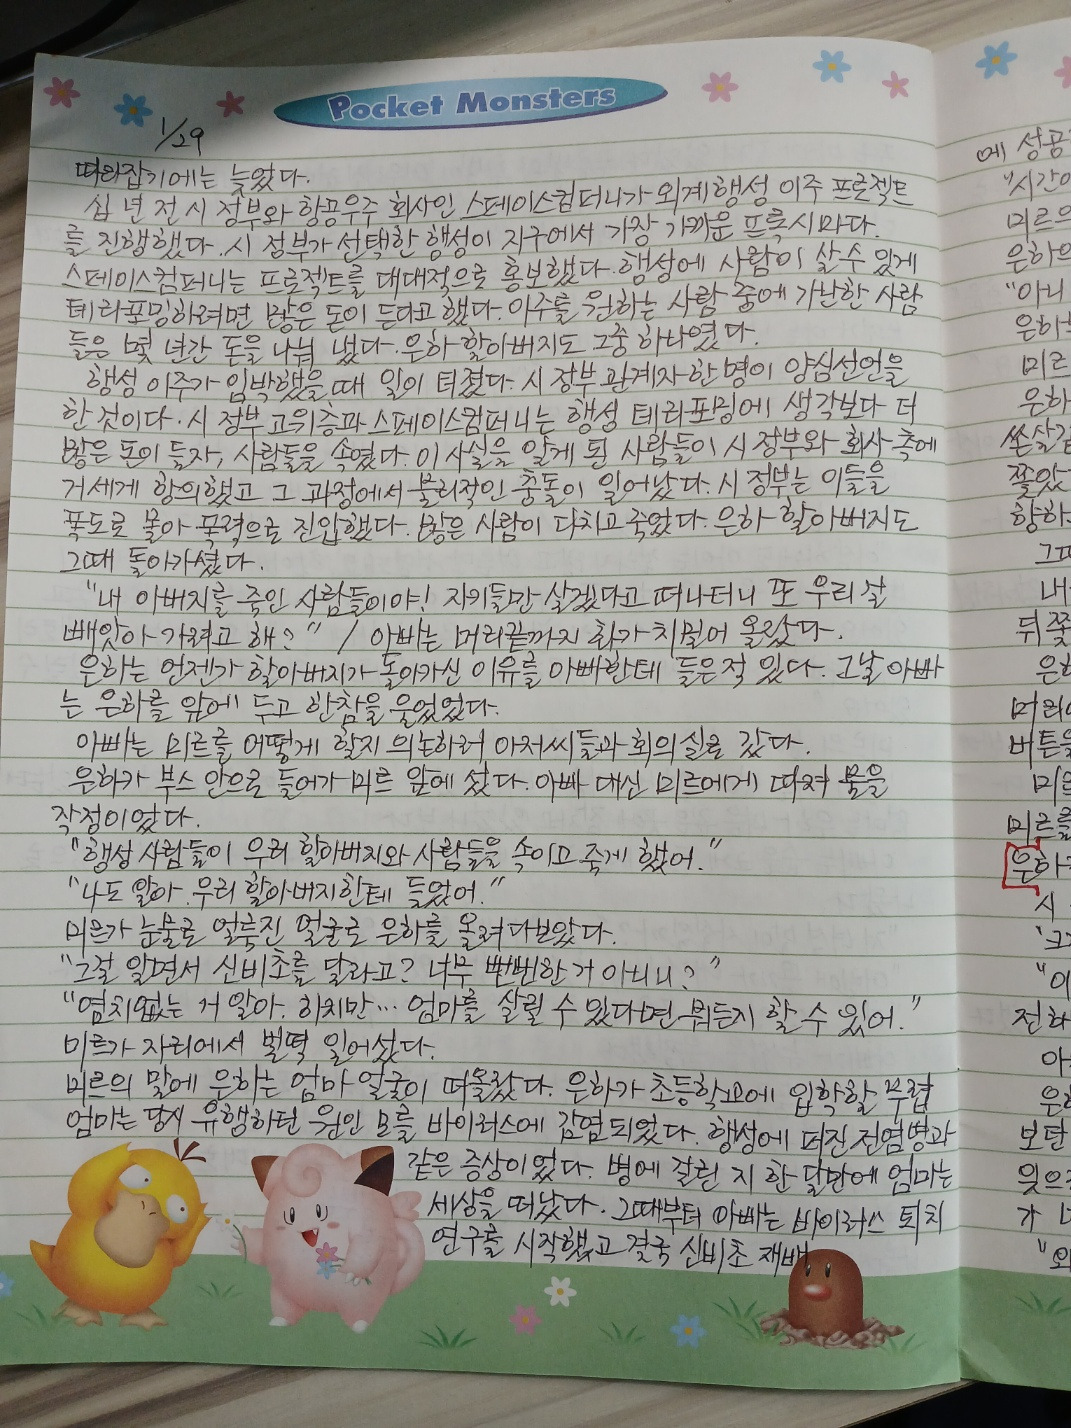 Pocket Monsters
1/29
따라잡기에는 늦었다.
십 년 전 시 정부와 항공우주 회사인 스페이스컴퍼니가 외계 행성 이주 프로젝트
를 진행했다. 시 정부가 선택한 행성이 지구에서 가장 가까운 프록시마다.
스페이스컴퍼니는 프로젝트를 대대적으로 홍보했다. 행성에 사람이 살 수 있게
테라포밍하려면 많은 돈이 든다고 했다. 이주를 원하는 사람 중에 가난한 사람
들은 몇 년간 돈을 나눠 냈다. 은하 할아버지도 그중 하나였다.
행성 이주가 임박했을 때 일이 터졌다. 시 정부 관계자 한 명이 양심선언을
한 것이다. 시 정부 고위층과 스페이스컴퍼니는 행성 테라포밍에 생각보다 더
많은 돈이 들자, 사람들을 속였다. 이 사실을 알게 된 사람들이 시 정부와 회사 측에
거세게 항의했고 그 과정에서 물리적인 충돌이 일어났다. 시 정부는 이들을
폭도로 몰아 폭력으로 진압했다. 많은 사람이 다치고 죽었다. 은하 할아버지도
그때 돌아가셨다.
"내 아버지를 죽인 사람들이야! 자기들만 살겠다고 떠나더니 또 우리 걸
빼앗아 가려고 해?" / 아빠는 머리끝까지 화가 치밀어 올랐다.
은하는 언젠가 할아버지가 돌아가신 이유를 아빠한테 들은 적 있다. 그날 아빠
는 은하를 앞에 두고 한참을 울었었다.
아빠는 미르를 어떻게 할지 의논하러 아저씨들과 회의실을 갔다.
은하가 부스 안으로 들어가 미르 앞에 섰다. 아빠 대신 미르에게 따져 물을
작정이었다.
"행성 사람들이 우리 할아버지와 사람들을 속이고 죽게 했어."
"나도 알아. 우리 할아버지한테 들었어."
미르가 눈물로 얼룩진 얼굴로 은하를 올려다보았다.
"그걸 알면서 신비초를 달라고? 너무 뻔뻔한 거 아니니?"
"염치없는 거 알아. 하지만… 엄마를 살릴 수 있다면 뭐든지 할 수 있어."
미르가 자리에서 벌떡 일어섰다.
미르의 말에 은하는 엄마 얼굴이 떠올랐다. 은하가 초등학교에 입학할 무렵
엄마는 당시 유행하던 원인 모를 바이러스에 감염되었다. 행성에 퍼진 전염병과
같은 증상이었다. 병에 걸린 지 한 달만에 엄마는
세상을 떠났다. 그때부터 아빠는 바이러스 퇴치
연구를 시작했고 결국 신비초 재배
에 성공
"시간이
미르의
은하의
"아니
은하
미르
은하
쏜살같
쫓았
향하
그때
내
뒤쫓
은하
머리
버튼을
미르
미르를
은하
시
"그
"이
전하
아
은하
보단
웃으
가 너
"왜